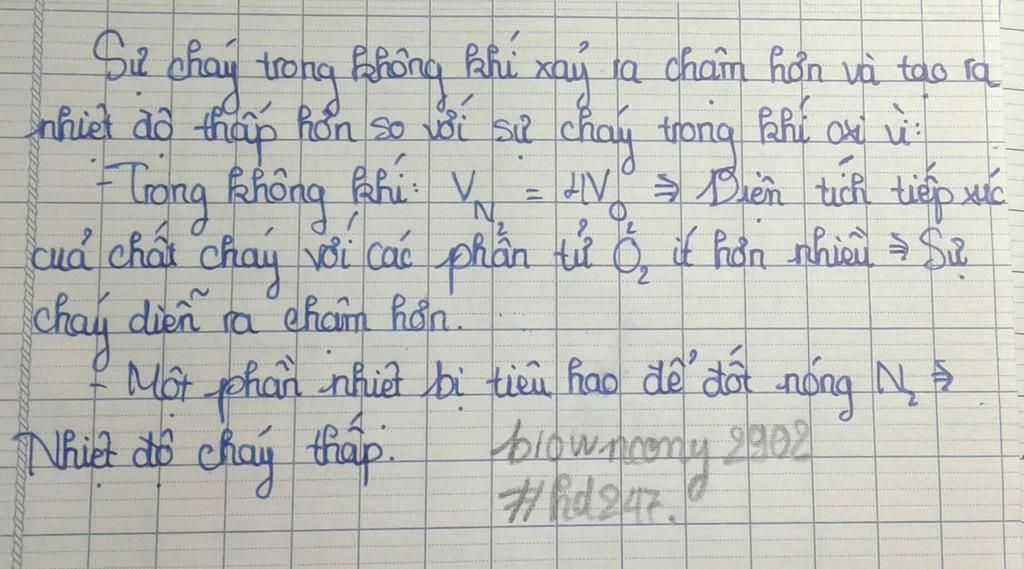 Sự cháy trong không khí xảy ra chậm hơn và tạo ra
nhiệt độ thấp hơn so với sự cháy trong khí oxi vì:
- Trong không khí: V_N₂ = 4V_O₂ ⇒ Diện tích tiếp xúc
của chất cháy với các phân tử O₂ ít hơn nhiều ⇒ Sự
cháy diễn ra chậm hơn.
- Một phần nhiệt bị tiêu hao để đốt nóng N₂ ⇒
Nhiệt độ cháy thấp.
browncony 2902
#hd247.